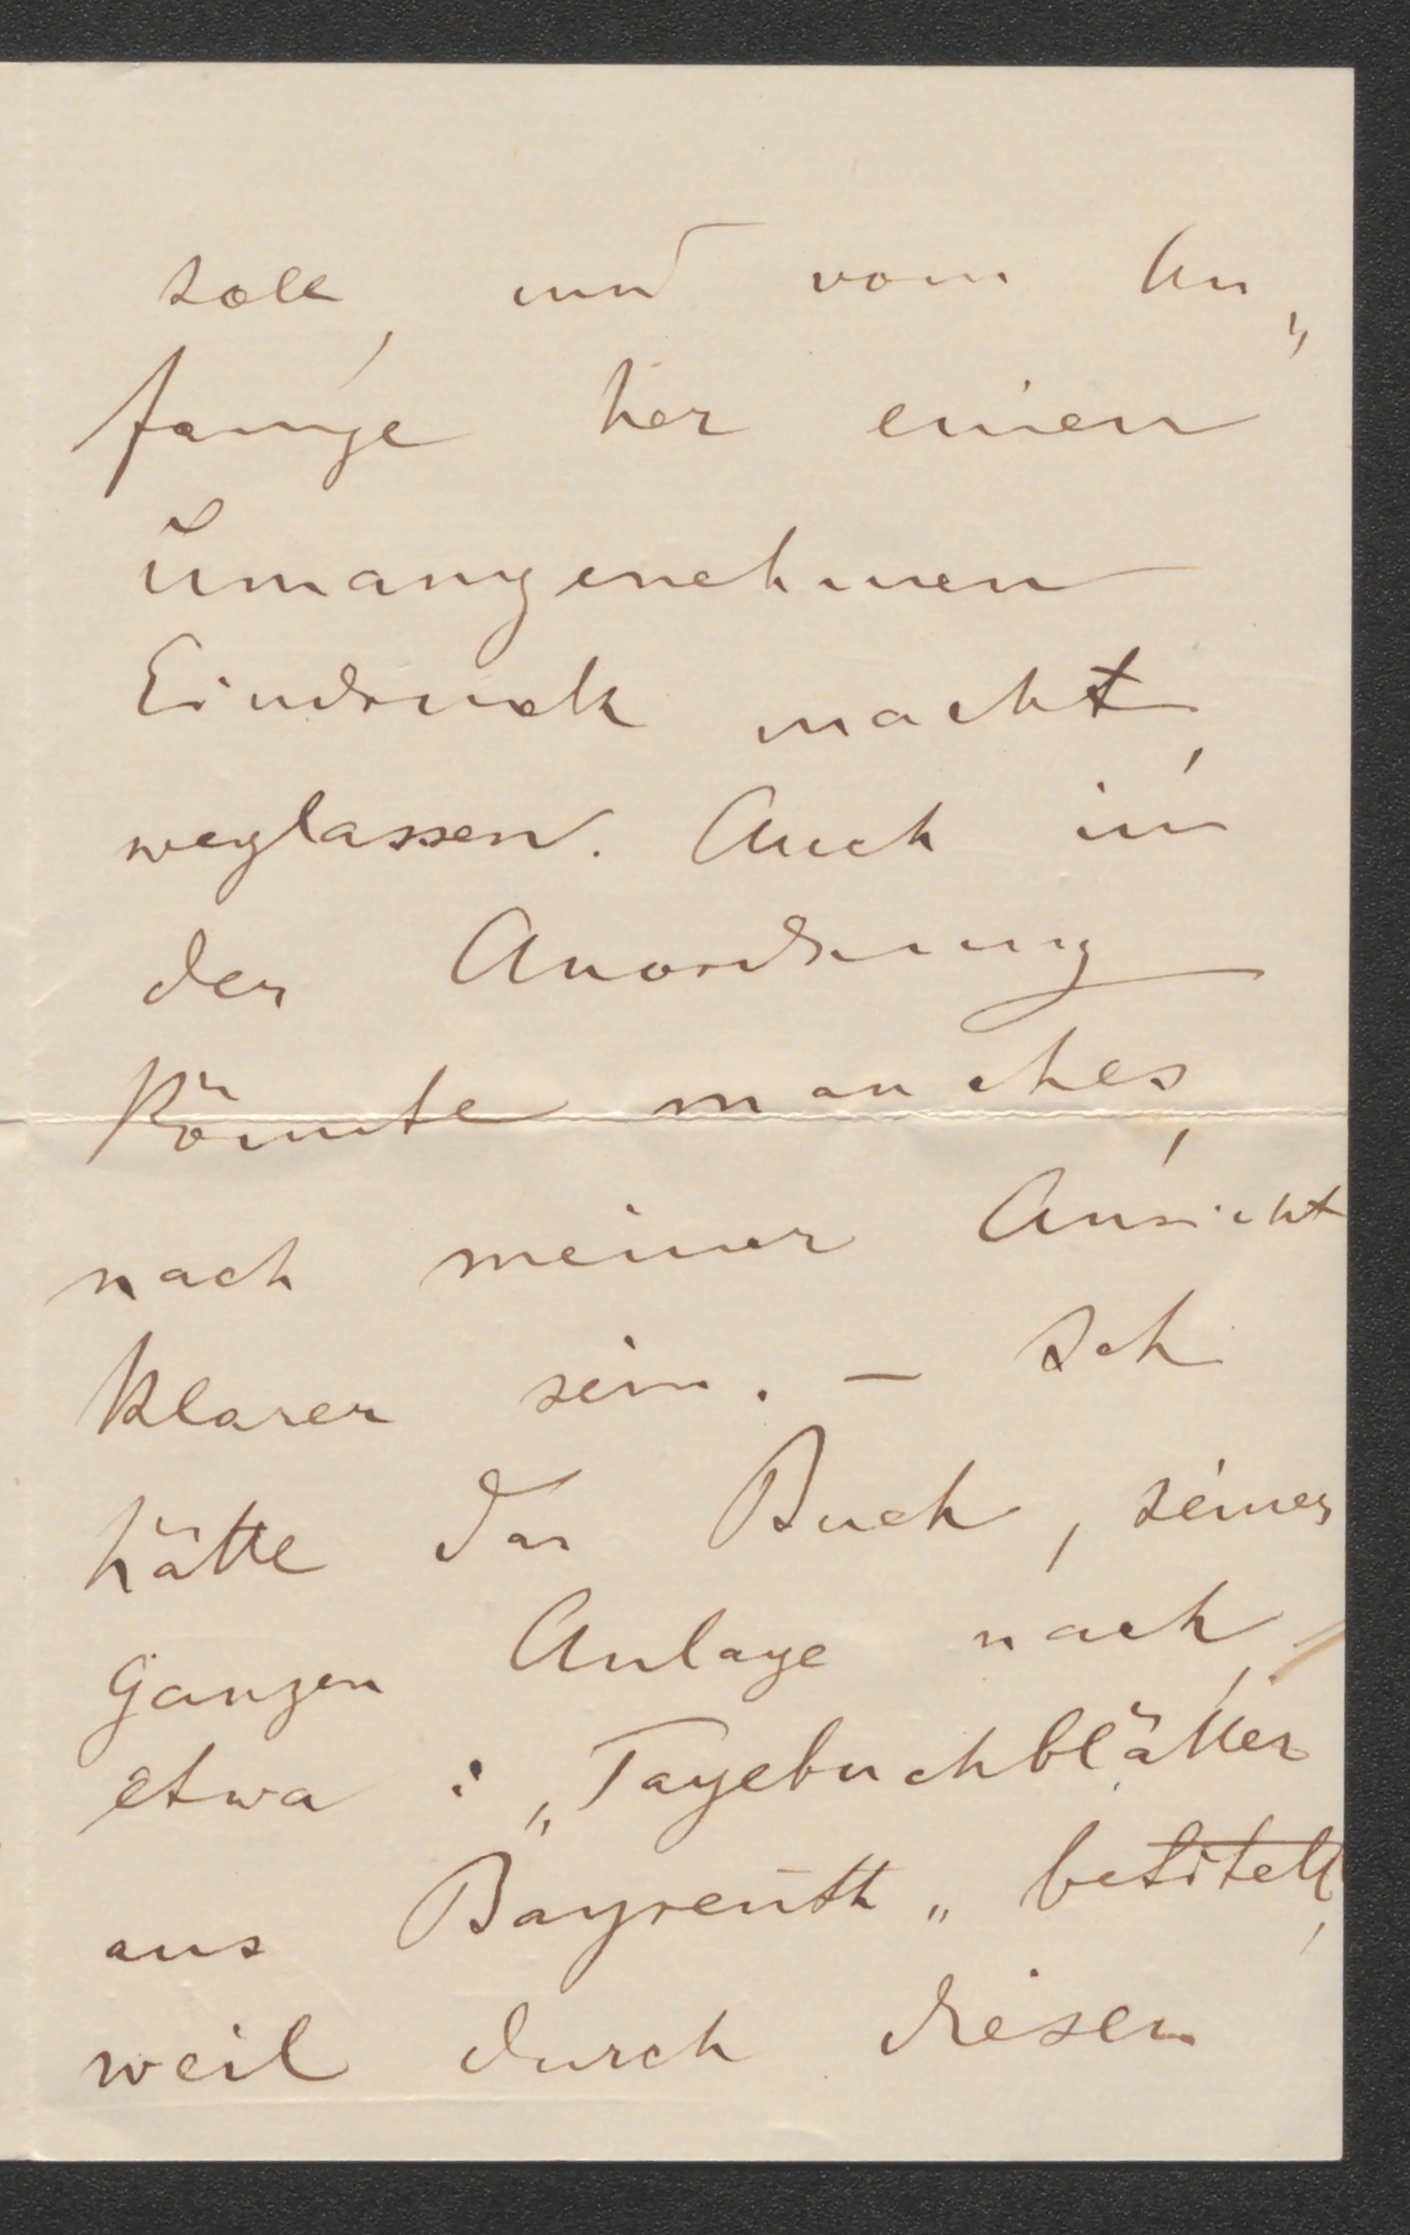 soll, und vom An„
fange her einen
unangenehmen
Eindruck macht,
weglassen. Auch in
der Anordnung
könnte manches,
nach meiner Ansicht
klarer sein. – Ich
hätte das Buch, seiner
ganzen Anlage nach,
etwa: „Tagebuchblätter
aus Bayreuth„ betitelt,
weil durch diesen